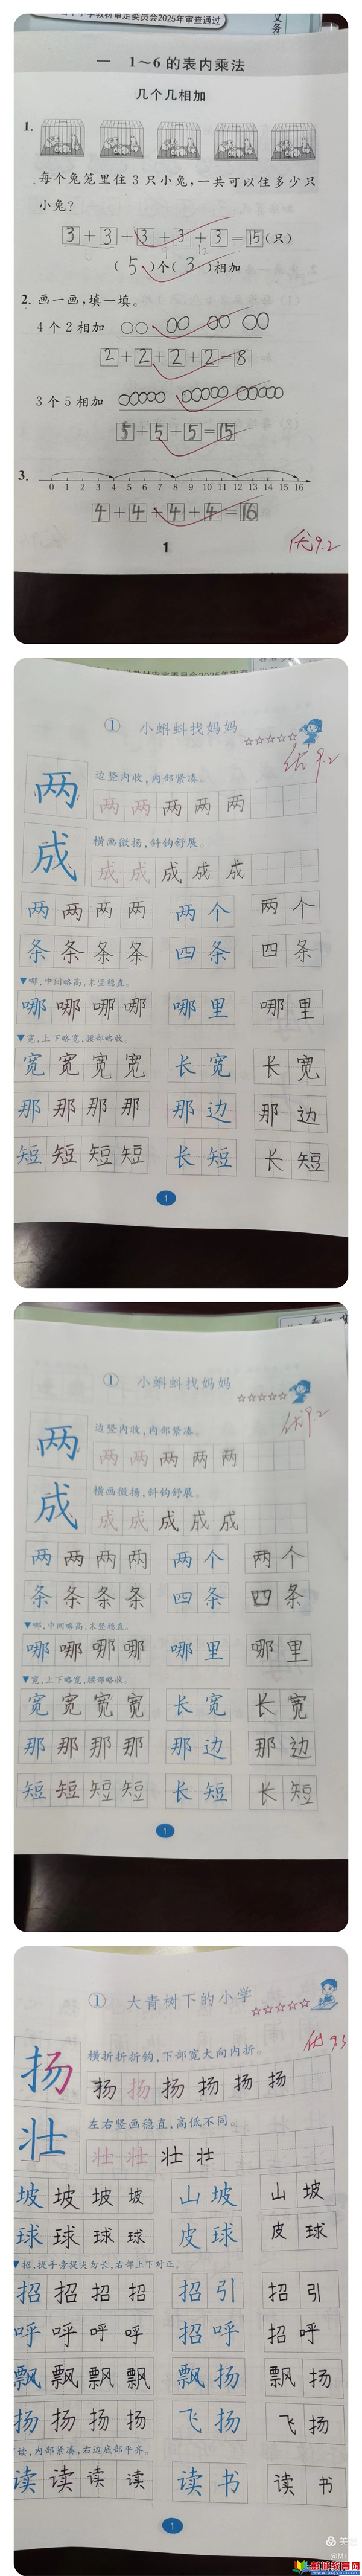 中小学教材审定委员会2025年审查通过
义务
一 1～6的表内乘法
几个几相加
1.
每个兔笼里住3只小兔,一共可以住多少只
小兔?
3+3+3+3+3=15(只)
9 12
(5、)个(3)相加
2. 画一画,填一填。
4个2相加
2+2+2+2=8
3个5相加
5+5+5=15
3.
0 1 2 3 4 5 6 7 8 9 10 11 12 13 14 15 16
4+4+4+4=16
1
优9.2
教材审定委员会2025年审查
① 小蝌蚪找妈妈
☆☆☆☆☆
优9.2
两 边竖内收,内部紧凑。
两 两 两 两 两
成 横画微扬,斜钩舒展。
成 成 成 成 成
两 两 两 两 两 个 两 个
条 条 条 条 四 条 四 条
▼哪,中间略高,末竖稳直。
哪 哪 哪 哪 哪 里 哪 里
▼宽,上下略宽,腰部略收。
宽 宽 宽 宽 长 宽 长 宽
那 那 那 那 那 边 那 边
短 短 短 短 长 短 长 短
1
① 小蝌蚪找妈妈
☆☆☆☆☆
优9.2
两 边竖内收,内部紧凑。
两 两 两 两 两
成 横画微扬,斜钩舒展。
成 成 成 成 成
两 两 两 两 两 个 两 个
条 条 条 条 四 条 四 条
▼哪,中间略高,末竖稳直。
哪 哪 哪 哪 哪 里 哪 里
▼宽,上下略宽,腰部略收。
宽 宽 宽 宽 长 宽 长 宽
那 那 那 那 那 边 那 边
短 短 短 短 长 短 长 短
1
① 大青树下的小学
☆☆☆☆☆
优9.3
扬 横折折折钩,下部宽大向内折。
扬 扬 扬 扬 扬 扬
壮 左右竖画稳直,高低不同。
壮 壮 壮 壮
坡 坡 坡 坡 山 坡 山 坡
球 球 球 球 皮 球 皮 球
▼招,提手旁提尖勿长,右部上下对正。
招 招 招 招 招 引 招 引
呼 呼 呼 呼 招 呼 招 呼
飘 飘 飘 飘 飘 扬 飘 扬
扬 扬 扬 扬 飞 扬 飞 扬
读,内部紧凑,右边底部平齐。
读 读 读 读 读 书 读 书
1
美篇
@Mr